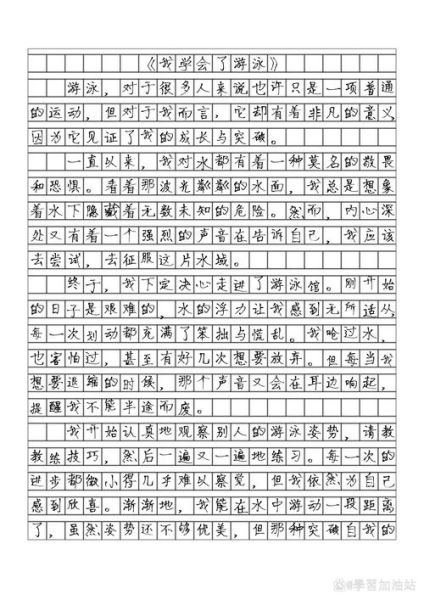 《我学会了游泳》
游泳，对于很多人来说也许只是一项普通
的运动，但对于我而言，它却有着非凡的意义，
因为它见证了我的成长与突破。
一直以来，我对水都有着一种莫名的敬畏
和恐惧。看着那波光粼粼的水面，我总是想象
着水下隐藏着无数未知的危险。然而，内心深
处又有着一个强烈的声音在告诉自己，我应该
去尝试，去征服这片水域。
终于，我下定决心走进了游泳馆。刚开始
的日子是艰难的，水的浮力让我感到无所适从，
每一次划动都充满了笨拙与慌乱。我呛过水，
也害怕过，甚至有好几次想要放弃。但每当我
想要退缩的时候，那个声音又会在耳边响起，
提醒我不能半途而废。
我开始认真地观察别人的游泳姿势，请教
教练技巧，然后一遍又一遍地练习。每一次的
进步都微小得几乎难以察觉，但我依然为自己
感到欣喜。渐渐地，我能在水中游动一段距离
了，虽然姿势还不够优美，但那种突破自我的
@學習加油站